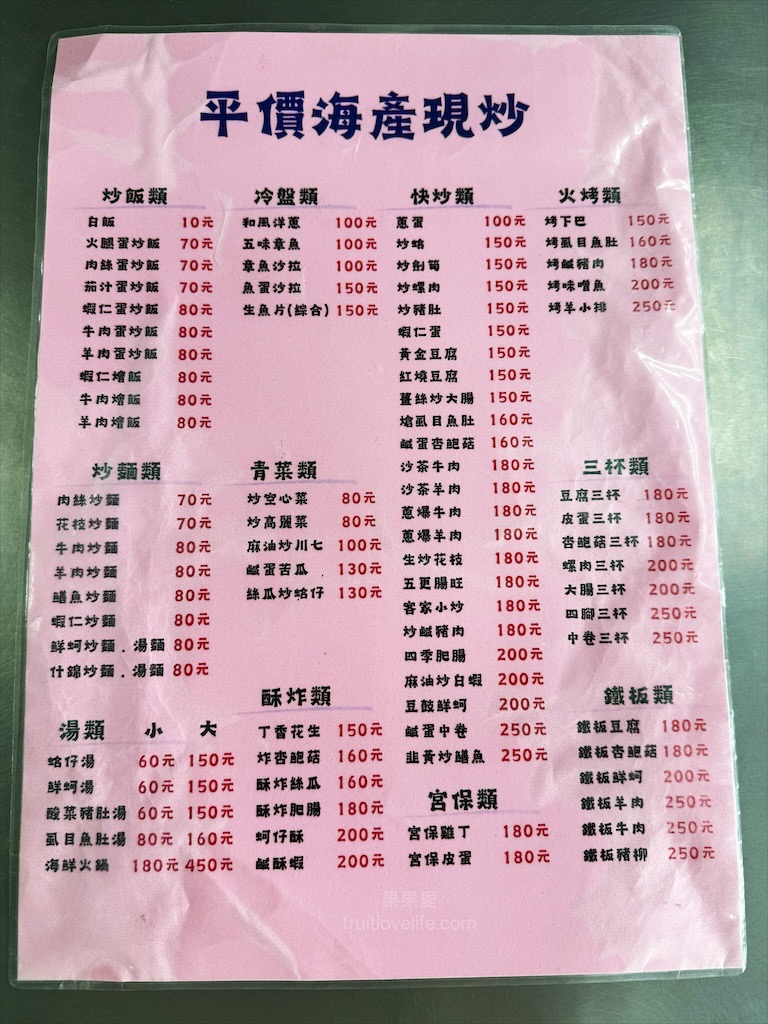 平價海產現炒
炒飯類
白飯 10元
火腿蛋炒飯 70元
肉絲蛋炒飯 70元
茄汁蛋炒飯 70元
蝦仁蛋炒飯 80元
牛肉蛋炒飯 80元
羊肉蛋炒飯 80元
蝦仁燴飯 80元
牛肉燴飯 80元
羊肉燴飯 80元
炒麵類
肉絲炒麵 70元
花枝炒麵 70元
牛肉炒麵 80元
羊肉炒麵 80元
鱔魚炒麵 80元
蝦仁炒麵 80元
鮮蚵炒麵．湯麵 80元
什錦炒麵．湯麵 80元
湯類 小 大
蛤仔湯 60元 150元
鮮蚵湯 60元 150元
酸菜豬肚湯 60元 150元
虱目魚肚湯 80元 160元
海鮮火鍋 180元 450元
冷盤類
和風洋蔥 100元
五味章魚 100元
章魚沙拉 100元
魚蛋沙拉 150元
生魚片(綜合) 150元
青菜類
炒空心菜 80元
炒高麗菜 80元
麻油炒川七 100元
鹹蛋苦瓜 130元
絲瓜炒蛤仔 130元
酥炸類
丁香花生 150元
炸杏鮑菇 160元
酥炸絲瓜 160元
酥炸肥腸 180元
蚵仔酥 200元
鹹酥蝦 200元
快炒類
蔥蛋 100元
炒蛤 150元
炒劍筍 150元
炒螺肉 150元
炒豬肚 150元
蝦仁蛋 150元
黃金豆腐 150元
紅燒豆腐 150元
薑絲炒大腸 150元
熗虱目魚肚 160元
鹹蛋杏鮑菇 160元
沙茶牛肉 180元
沙茶羊肉 180元
蔥爆牛肉 180元
蔥爆羊肉 180元
生炒花枝 180元
五更腸旺 180元
客家小炒 180元
炒鹹豬肉 180元
四季肥腸 200元
麻油炒白蝦 200元
豆豉鮮蚵 200元
鹹蛋中卷 250元
韭黃炒鱔魚 250元
宮保類
宮保雞丁 180元
宮保皮蛋 180元
火烤類
烤下巴 150元
烤虱目魚肚 160元
烤鹹豬肉 180元
烤味噌魚 200元
烤羊小排 250元
三杯類
豆腐三杯 180元
皮蛋三杯 180元
杏鮑菇三杯 180元
螺肉三杯 200元
大腸三杯 200元
四腳三杯 250元
中卷三杯 250元
鐵板類
鐵板豆腐 180元
鐵板杏鮑菇 180元
鐵板鮮蚵 200元
鐵板羊肉 250元
鐵板牛肉 250元
鐵板豬柳 250元
果果愛
fruitlovelife.com